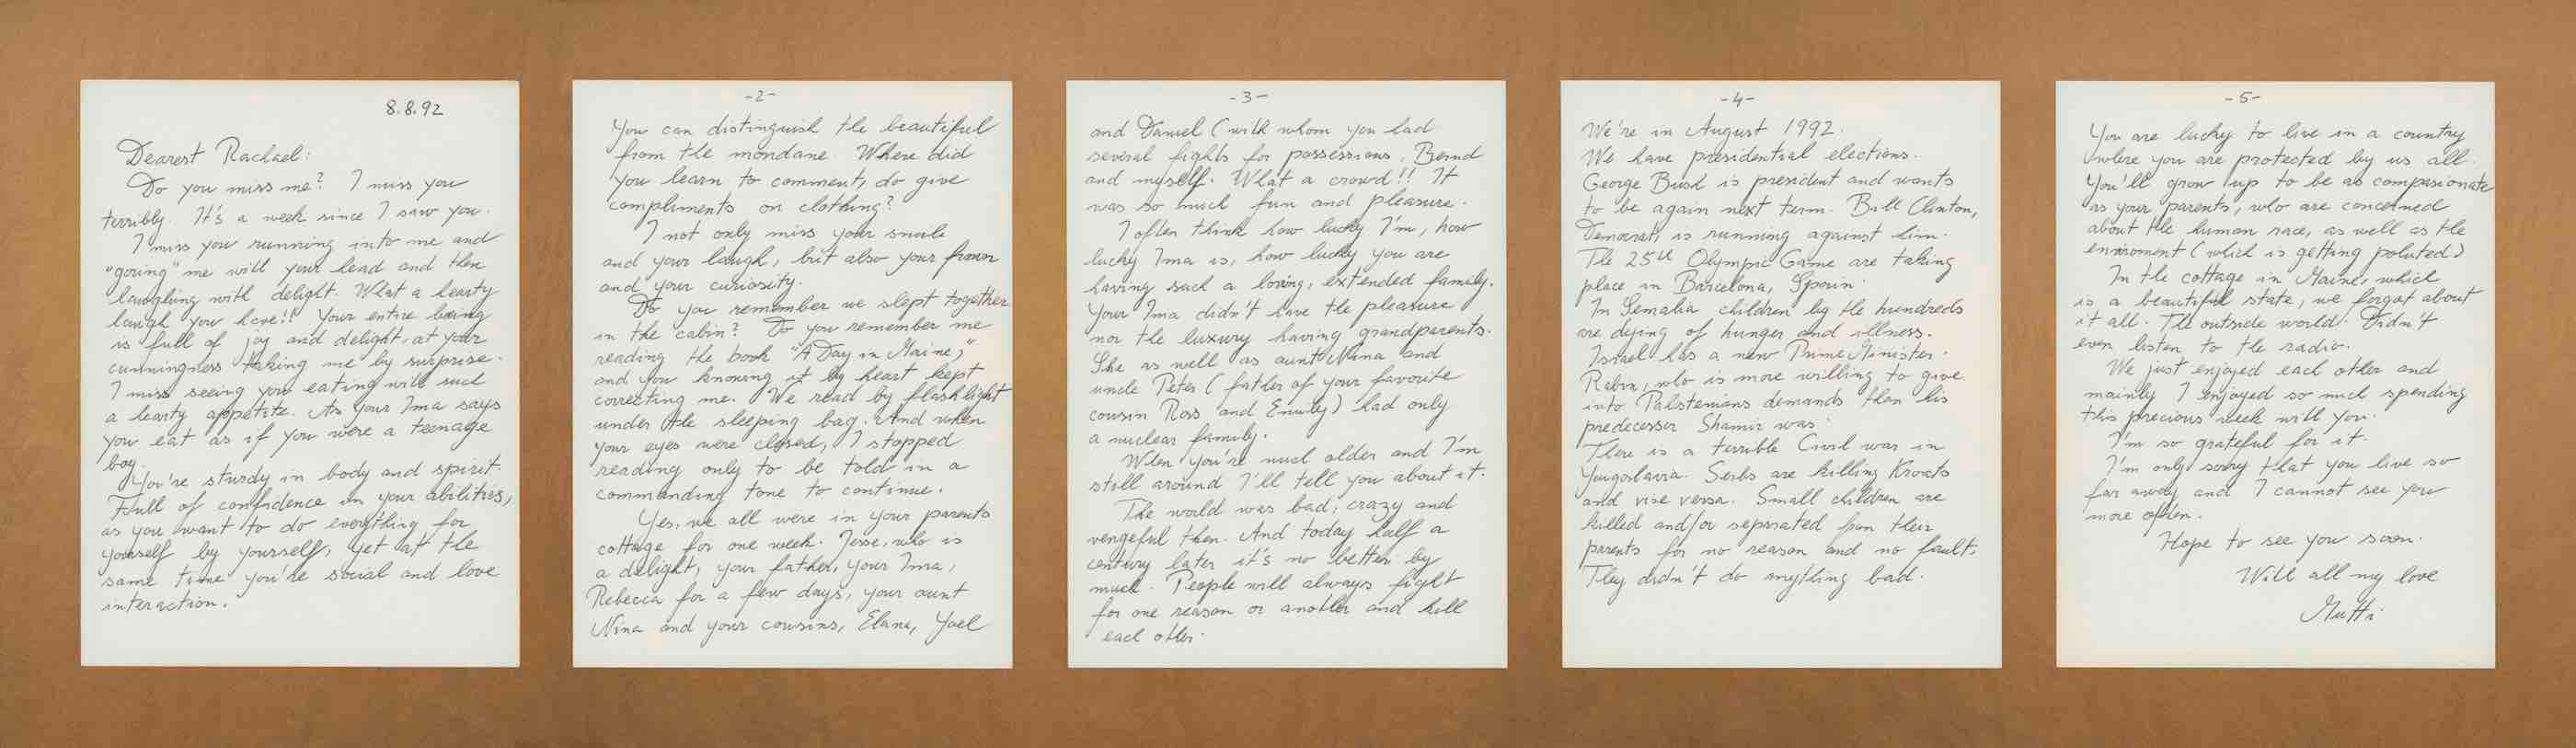 8.8.92
Dearest Rachael:
Do you miss me? I miss you
terribly. It's a week since I saw you.
I miss you running into me and
"goring" me with your head and then
laughing with delight. What a hearty
laugh you have!! Your entire being
is full of joy and delight, at your
cunningness taking me by surprise.
I miss seeing you eating with such
a hearty appetite. As your Ima says
you eat as if you were a teenage
boy.
You're sturdy in body and spirit.
Full of confidence in your abilities,
as you want to do everything for
yourself by yourself, yet at the
same time you're social and love
interaction.
-2-
You can distinguish the beautiful
from the mondane. Where did
you learn to comment, do give
compliments on clothing?
I not only miss your smile
and your laugh, but also your frown
and your curiosity.
Do you remember we slept together
in the cabin? Do you remember me
reading the book "A Day in Maine,"
and you knowing it by heart kept
correcting me. We read by flashlight
under the sleeping bag. And when
your eyes were closed, I stopped
reading only to be told in a
commanding tone to continue.
Yes, we all were in your parents
cottage for one week. Jesse, who is
a delight, your father, your Ima,
Rebecca for a few days, your aunt
Nina and your cousins, Elana, Yael
-3-
and Daniel (with whom you had
several fights for possessions, Bernd
and myself. What a crowd!! It
was so much fun and pleasure.
I often think how lucky I'm, how
lucky Ima is, how lucky you are
having such a loving, extended family.
Your Ima didn't have the pleasure
nor the luxury having grandparents.
She as well as aunt Nina and
uncle Peter (father of your favorite
cousin Ross and Emily) had only
a nuclear family.
When you're much older and I'm
still around I'll tell you about it.
The world was bad, crazy and
vengeful then. And today half a
century later it's no better by
much. People will always fight
for one reason or another and kill
each other.
-4-
We're in August 1992.
We have presidential elections.
George Bush is president and wants
to be again next term. Bill Clinton,
Democrat, is running against him.
The 25th Olympic Game are taking
place in Barcelona, Spain.
In Somalia children by the hundreds
are dying of hunger and illness.
Israel has a new Prime Minister.
Rabin, who is more willing to give
into Palstenians demands then his
predecessor Shamir was.
There is a terrible Civil war in
Yougoslavia. Serbs are killing Kroats
and vise versa. Small children are
killed and/or separated from their
parents for no reason and no fault.
They didn't do anything bad.
-5-
You are lucky to live in a country
where you are protected by us all.
You'll grow up to be as compasionate
as your parents, who are concerned
about the human race, as well as the
enviroment (which is getting poluted)
In the cottage in Maine, which
is a beautiful state, we forgot about
it all. The outside world. Didn't
even listen to the radio.
We just enjoyed each other and
mainly I enjoyed so much spending
this precious week with you.
I'm so grateful for it.
I'm only sorry that you live so
far away and I cannot see you
more often.
Hope to see you soon.
With all my love
Mutti